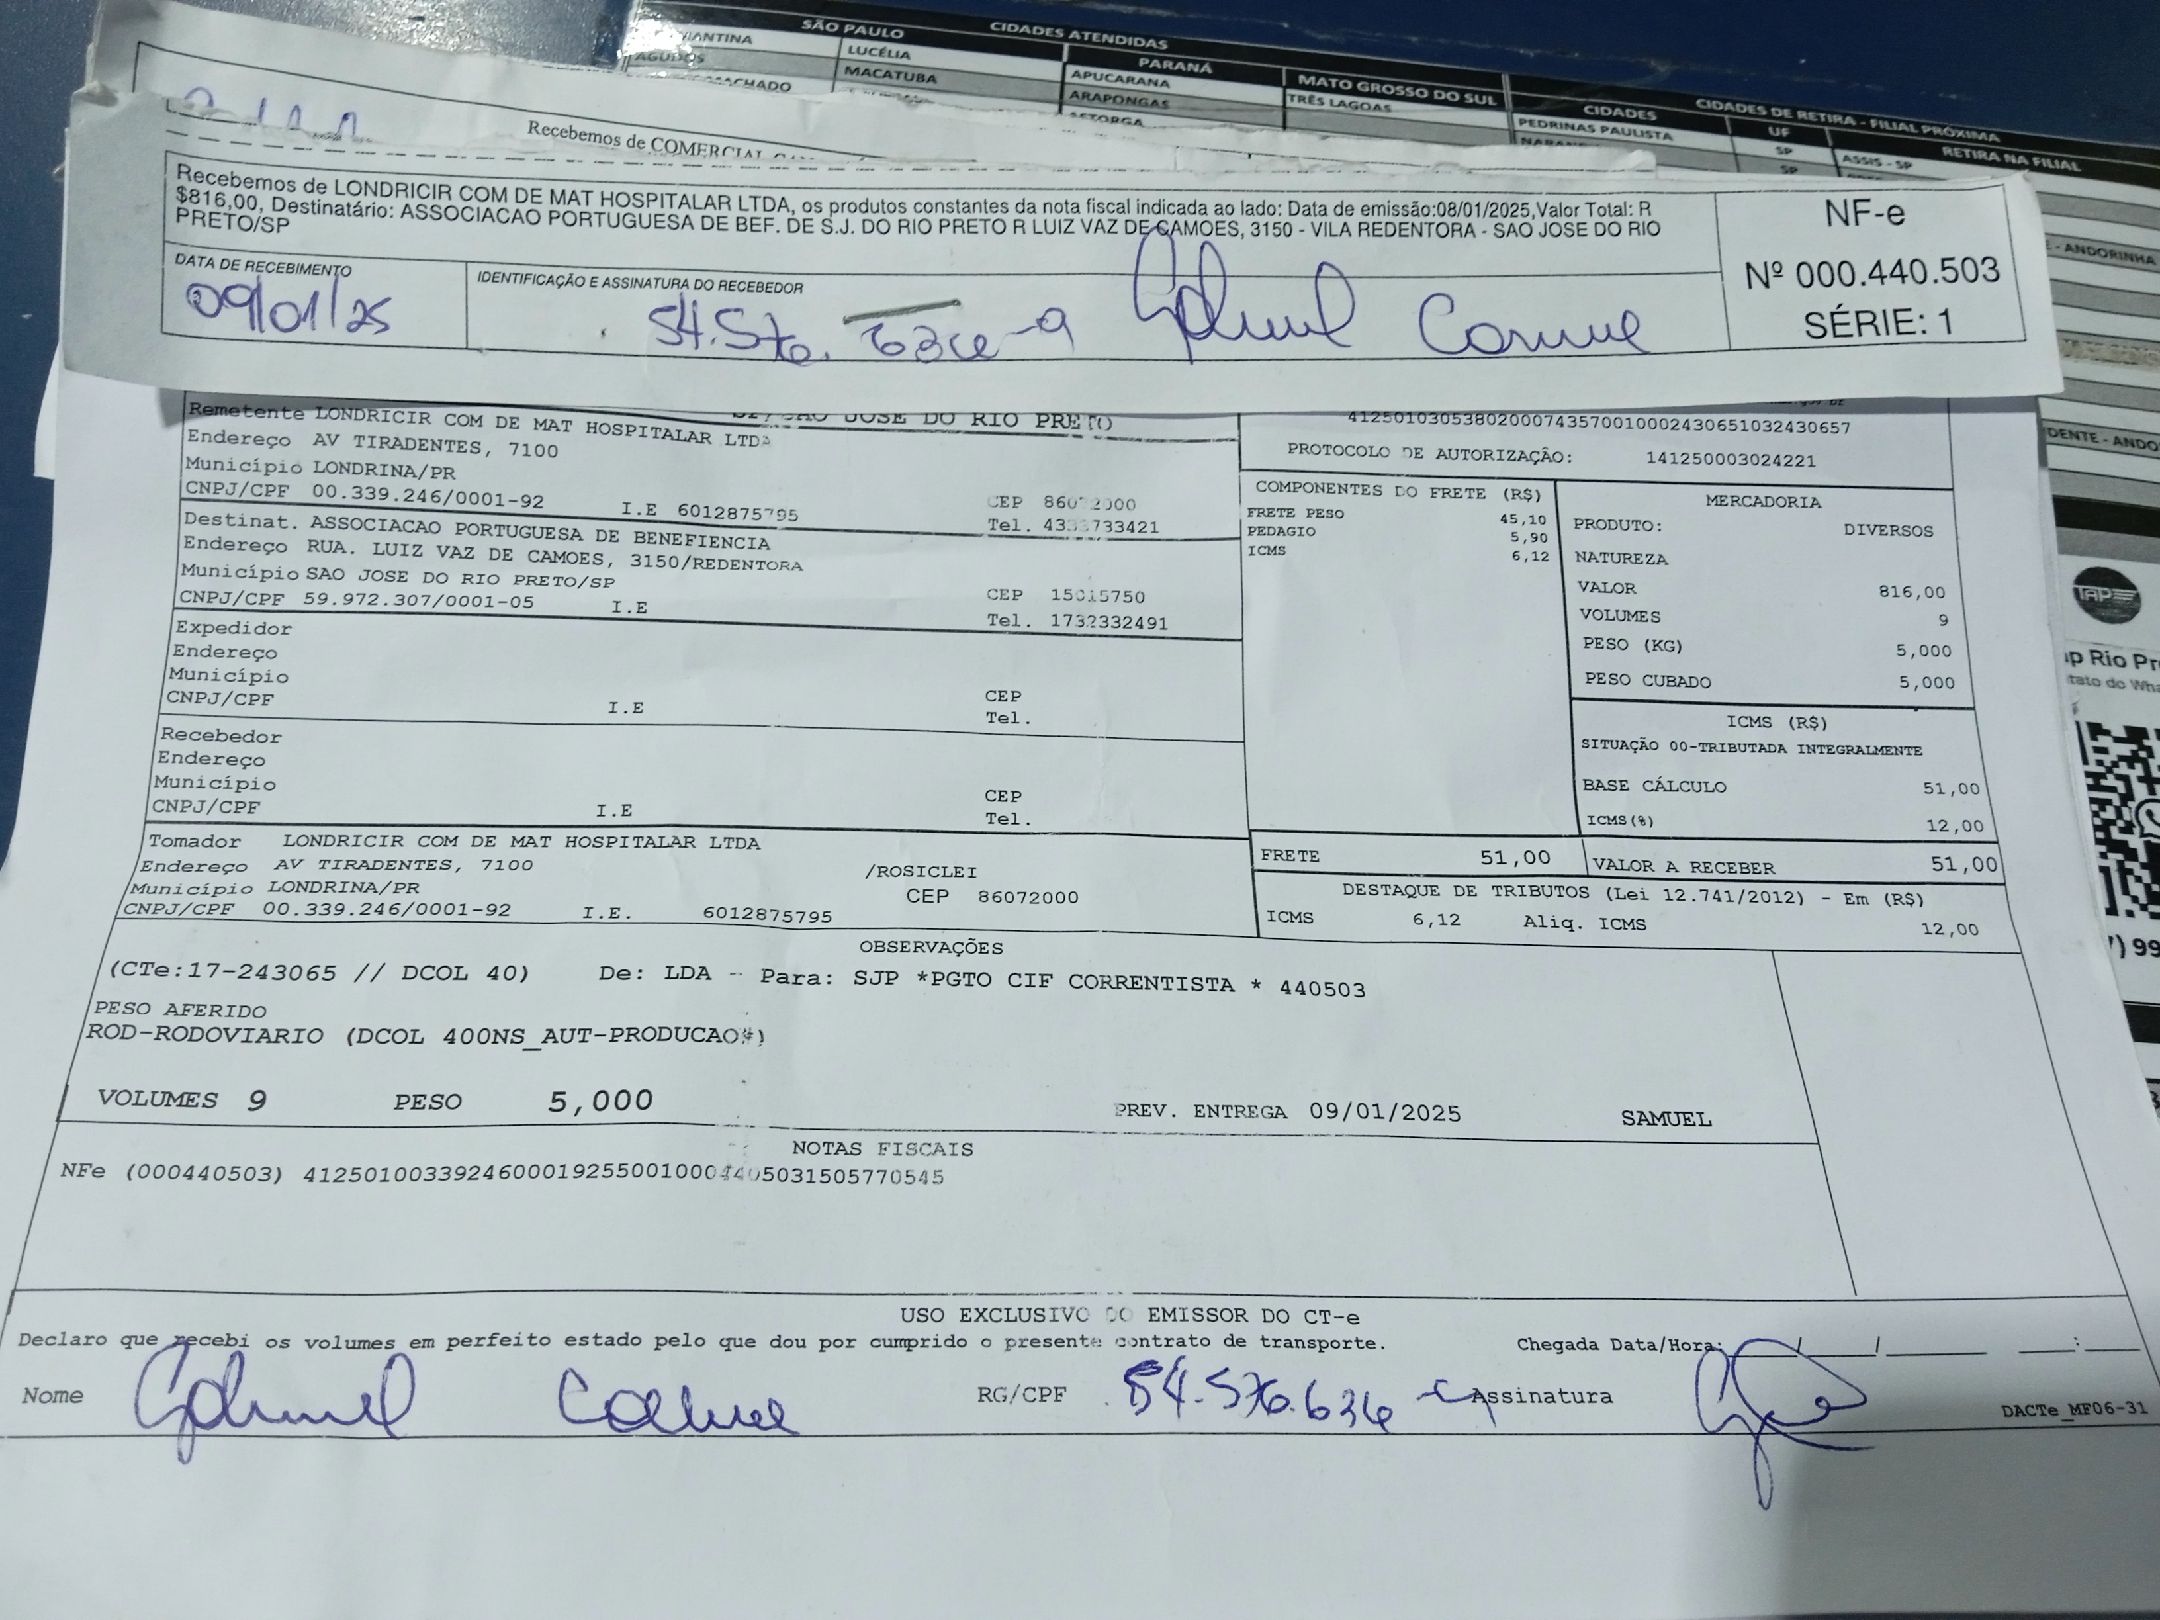 SÃO PAULO
CIDADES ATENDIDAS
LUCÉLIA
MACATUBA
PARANÁ
APUCARANA
ARAPONGAS
MATO GROSSO DO SUL
TRÊS LAGOAS
CIDADES DE RETIRA - FILIAL PRÓXIMA
CIDADES
UF
RETIRA NA FILIAL
PEDRINAS PAULISTA
SP
ASSIS - SP
SP
Recebemos de COMERCIAL
Recebemos de LONDRICIR COM DE MAT HOSPITALAR LTDA, os produtos constantes da nota fiscal indicada ao lado: Data de emissão:08/01/2025,Valor Total: R
$816,00, Destinatário: ASSOCIACAO PORTUGUESA DE BEF. DE S.J. DO RIO PRETO R LUIZ VAZ DE CAMOES, 3150 - VILA REDENTORA - SAO JOSE DO RIO
PRETO/SP
NF-e
Nº 000.440.503
SÉRIE: 1
DATA DE RECEBIMENTO
09/01/25
IDENTIFICAÇÃO E ASSINATURA DO RECEBEDOR
SAO JOSE DO RIO PRETO
Remetente LONDRICIR COM DE MAT HOSPITALAR LTDA
Endereço AV TIRADENTES, 7100
Município LONDRINA/PR
CNPJ/CPF 00.339.246/0001-92 I.E 6012875795 CEP
Tel.
Destinat. ASSOCIACAO PORTUGUESA DE BENEFIENCIA
Endereço RUA. LUIZ VAZ DE CAMOES, 3150/REDENTORA
Município SAO JOSE DO RIO PRETO/SP
CNPJ/CPF 59.972.307/0001-05 I.E CEP 15015750
Tel. 1732332491
Expedidor
Endereço
Município
CNPJ/CPF I.E CEP
Tel.
Recebedor
Endereço
Município
CNPJ/CPF I.E CEP
Tel.
Tomador LONDRICIR COM DE MAT HOSPITALAR LTDA
Endereço AV TIRADENTES, 7100 /ROSICLEI
Município LONDRINA/PR CEP 86072000
CNPJ/CPF 00.339.246/0001-92 I.E. 6012875795
41250103053802000743570010002430651032430657
PROTOCOLO DE AUTORIZAÇÃO: 141250003024221
COMPONENTES DO FRETE (R$)
FRETE PESO 45,10
PEDAGIO 5,90
ICMS 6,12
MERCADORIA
PRODUTO: DIVERSOS
NATUREZA
VALOR 816,00
VOLUMES 9
PESO (KG) 5,000
PESO CUBADO 5,000
ICMS (R$)
SITUAÇÃO 00-TRIBUTADA INTEGRALMENTE
BASE CÁLCULO 51,00
ICMS(%) 12,00
FRETE 51,00 VALOR A RECEBER 51,00
DESTAQUE DE TRIBUTOS (Lei 12.741/2012) - Em (R$)
ICMS 6,12 Aliq. ICMS 12,00
OBSERVAÇÕES
(CTe:17-243065 // DCOL 40) De: LDA - Para: SJP *PGTO CIF CORRENTISTA * 440503
PESO AFERIDO
ROD-RODOVIARIO (DCOL 400NS_AUT-PRODUCAO#)
VOLUMES 9 PESO 5,000 PREV. ENTREGA 09/01/2025 SAMUEL
NOTAS FISCAIS
NFe (000440503) 41250100339246000192550010004405031505770545
USO EXCLUSIVO DO EMISSOR DO CT-e
Declaro que recebi os volumes em perfeito estado pelo que dou por cumprido o presente contrato de transporte. Chegada Data/Hora: / / :
Nome RG/CPF 54.576.636 Assinatura
DACTe_MF06-31
TAP